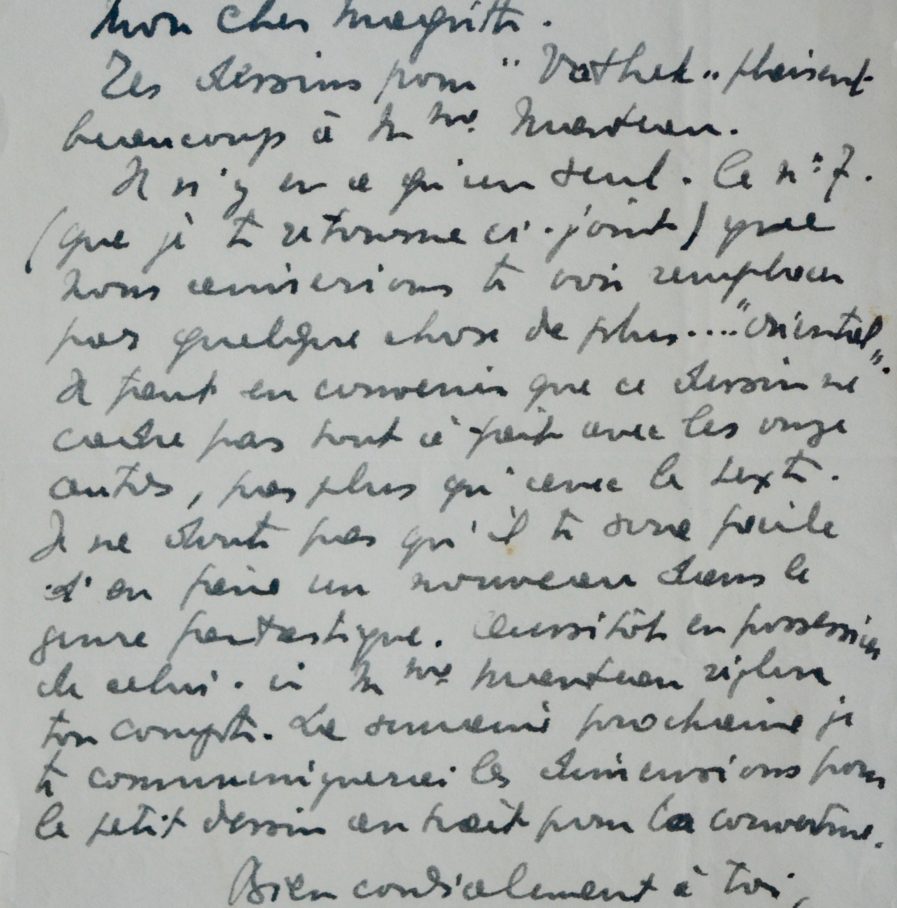 Mon cher Magritte.
Tes dessins pour "Vathek" plaisent
beaucoup à Mme. Manteau.
Il n'y en a qu'un seul. Le n° 7.
(que je te retourne ci-joint) que
nous aimerions te voir remplacer
par quelque chose de plus...."oriental".
Il faut en convenir que ce dessin ne
cadre pas tout à fait avec les onze
autres, pas plus qu'avec le texte.
Je ne doute pas qu'il te sera facile
d'en faire un nouveau dans le
genre fantastique. Aussitôt en possession
de celui-ci Mme. Manteau réglera
ton compte. La semaine prochaine je
te communiquerai les dimensions pour
le petit dessin au trait pour la couverture.
Bien cordialement à toi,